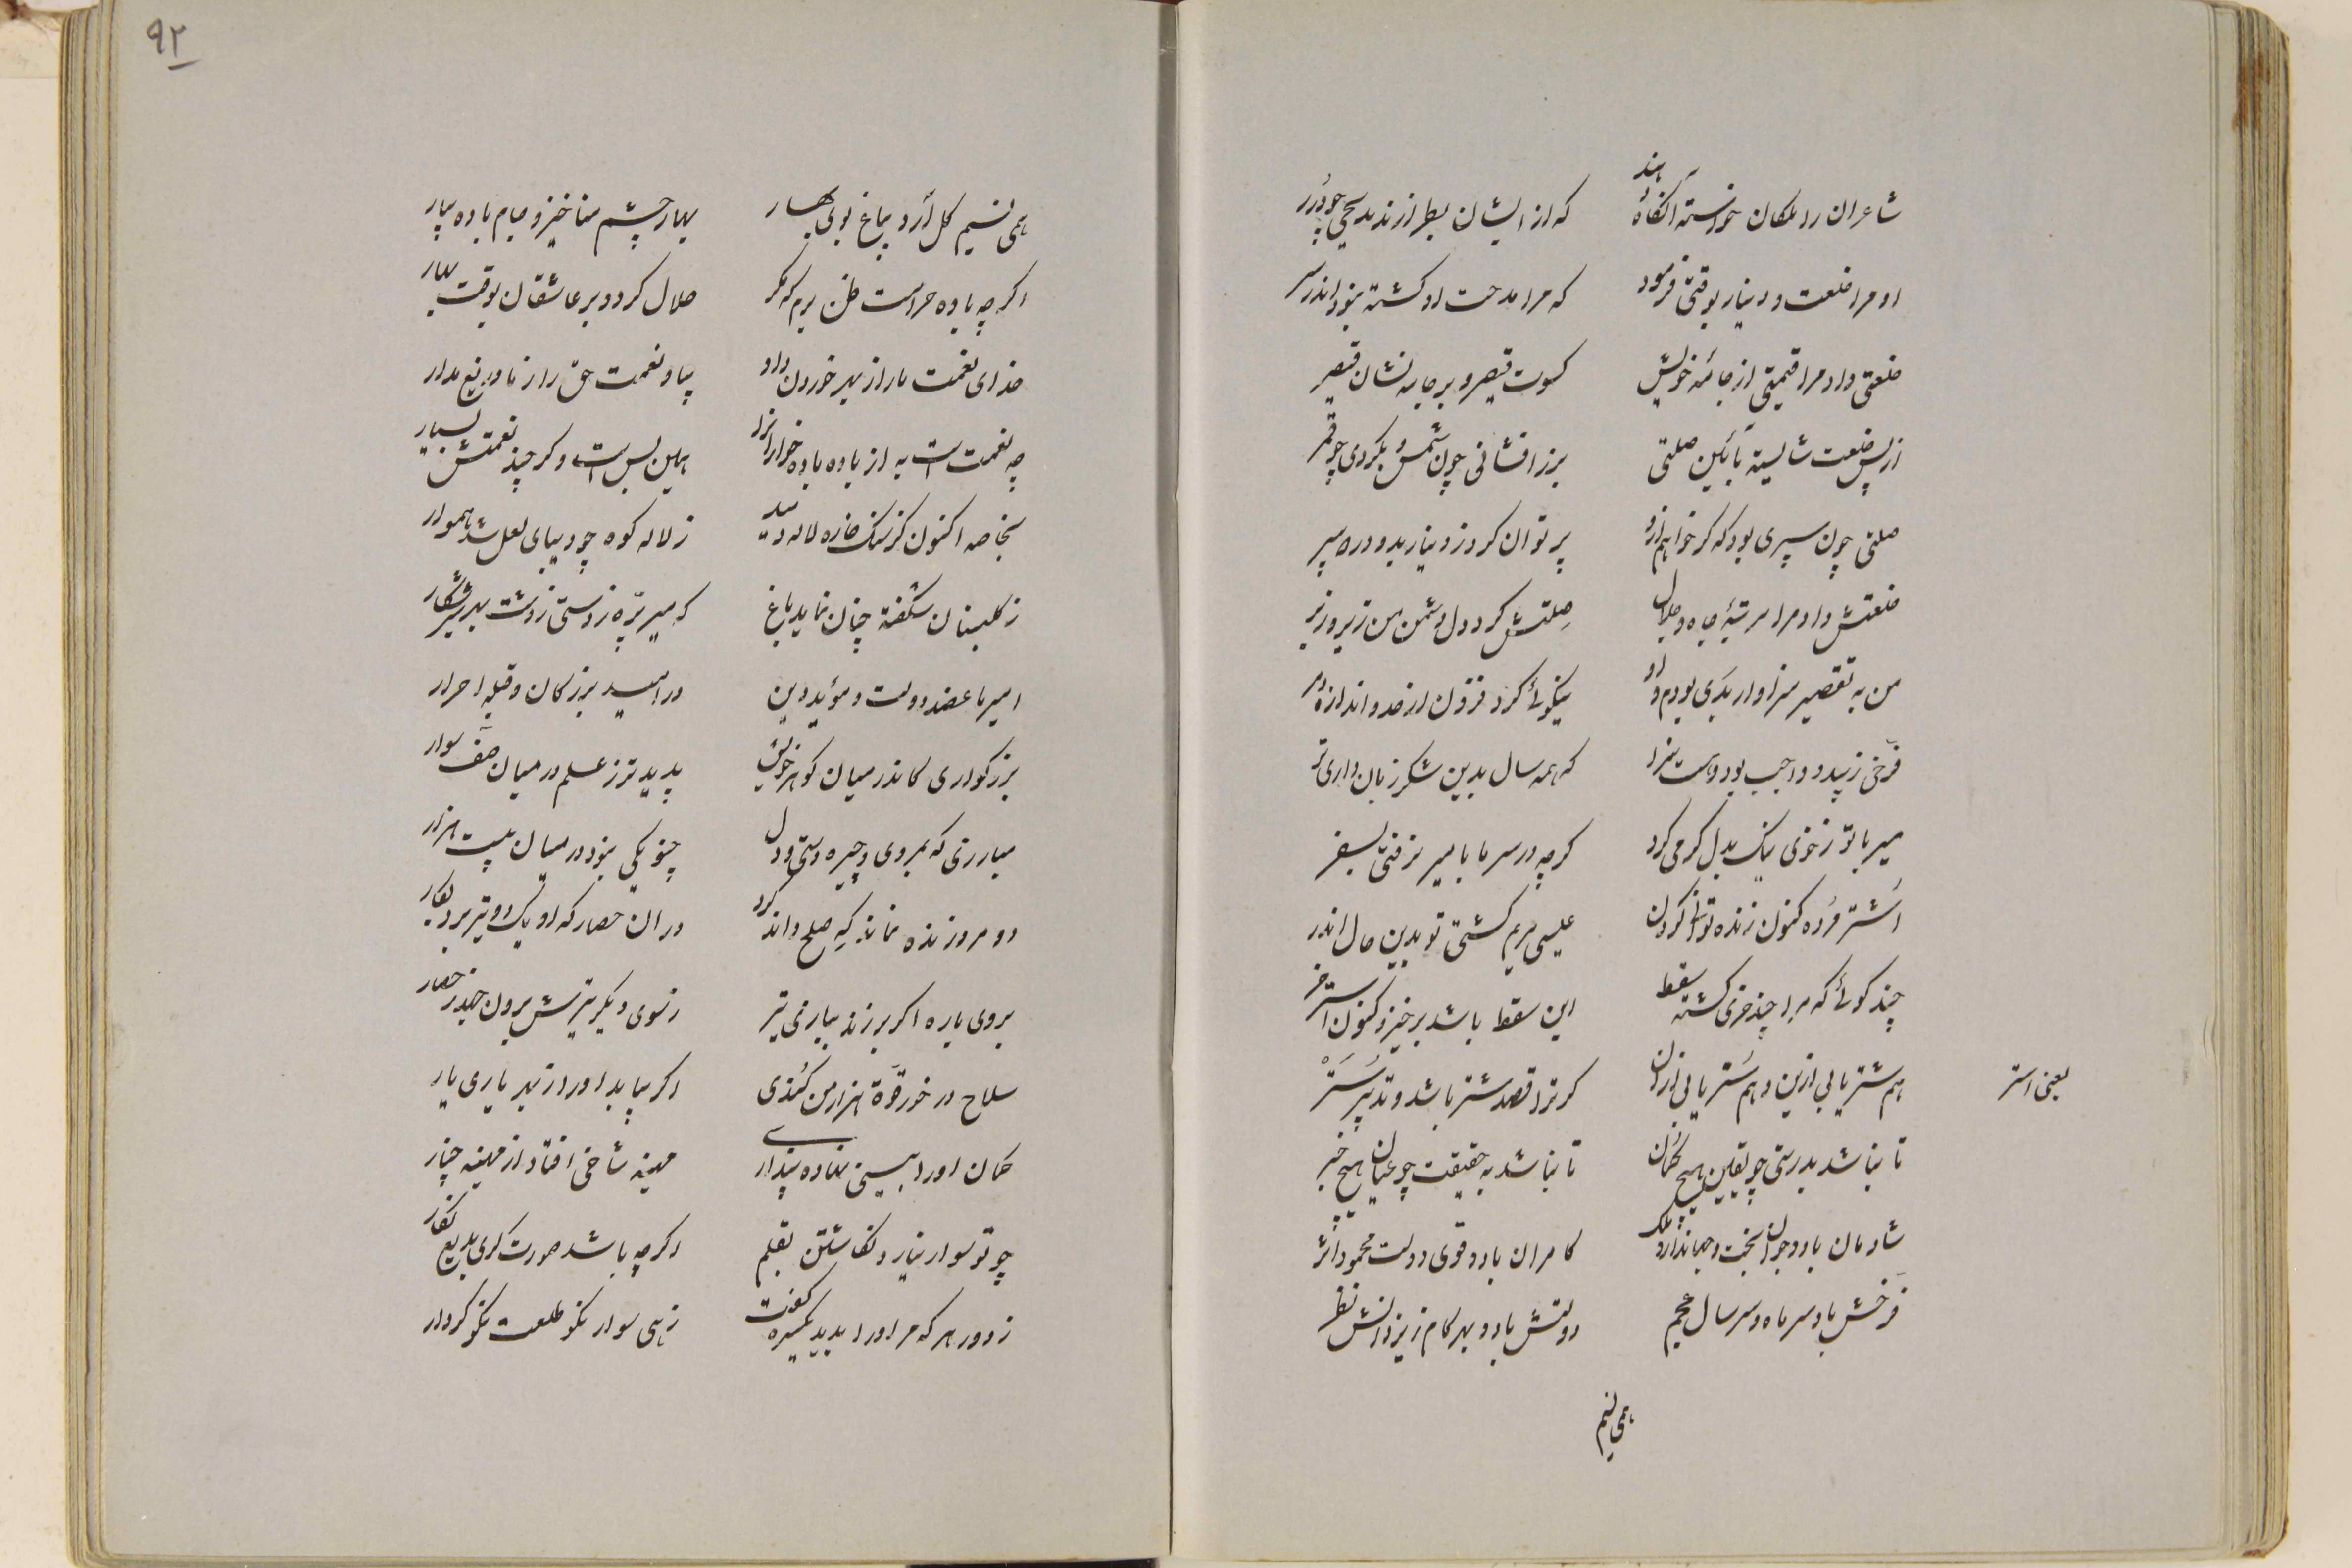 شاعران را ملکان خواسته آنگاه دهند که از ایشان بطرازند مدیحی چو درر
او مرا خلعت و دینار بوقتی فرمود که مرا مدحت او گشته نبود اندر سر
خلعتی داد مرا قیمتی از جامهٔ خویش کسوت قیصر و بر جامه نشان قیصر
از پس خلعت شایسته بآئین صلتی بزر افشانی چون شمس و بگردی چو قمر
صلتی چون سپری بود که گر خواهم ازو پر توان کرد ز دینار بدو در سپر
خلعتش داد مرا مرتبهٔ جاه و جلال صلتش کرد دل دشمن من زیر و زبر
من به تقصیر سزاوار بدی بودم و او نیکوئی کرد فزون از حد و اندازه و مر
فرخی زیبد و واجب بود و هست سزا که همه سال بدین شکر زبان داری تر
میر با تو ز خوی نیک بدل گرمی کرد گرچه در سرما با میر نرفتی بسفر
اشتر مرده کنون زنده توانی کردن عیسی مریم گشتی تو بدین حال اندر
چند گوئی که مرا چند خری گشته سقط این سقط باشد برخیز و کنون استر خر
هم شتر یابی ازین و هم ستر یابی ازان گر ترا قصد شتر باشد و تدبیر ستر
یعنی استر
تا نباشد بدرستی چو یقین هیچ گمان تا نباشد به حقیقت چو عیان هیچ خبر
شادمان باد و جوان بخت و جهاندار و ملک کامران باد و قوی دولت محمود اثر
فرخش باد سر ماه و سر سال عجم دولتش باد و بهر کام ز یزدانش نظر
همی نسیم
۹۲
همی نسیم گل آرد بباغ بوی بهار بهار چشم منا خیز و جام باده بیار
اگر چه باده حرامست ظن برم که مگر حلال گردد بر عاشقان بوقت بهار
خدای نعمت ما را ز بهر خوردن داد بیا و نعمت حق را ز ما دریغ مدار
چه نعمت است به از باده باده خواران را همین بس است و گر چند نعمتش بسیار
بخاصه اکنون کز سنگ خاره لاله دمید ز لاله کوه چو دیبای لعل شد هموار
ز گلبنان شکفته چنان نماید باغ که میر پره زدستی ز دشت بهر شکار
امیر ما عضد دولت و مؤید دین در امید بزرگان و قبله احرار
بزرگواری کاندر میان گوهر خویش پدید تر ز علم در میان صف سوار
مبارزی که بمردی و چیره دستی و دل چنو یکی نبود در میان بیست هزار
دو مرد زنده نماند که صلح داند کرد در ان حصار که او یک دو تیر برد بکار
بروی باره اگر برزند ببازی تیر ز سوی دیگر تیرش برون جهد ز حصار
سلاح در خور قوة هزار من کندی اگر بیابد او را ز بهر یاری یار
کمان او را بینی نهاده پنداری مهینه شاخی افتاد از مهینه چنار
چو تو سوار نیارد نگاشتن بقلم اگر چه باشد صورت گری بدیع نگار
ز دور هر که مر او را بدید یکسره گفت زهی سوار نکو طلعت نکو کردار